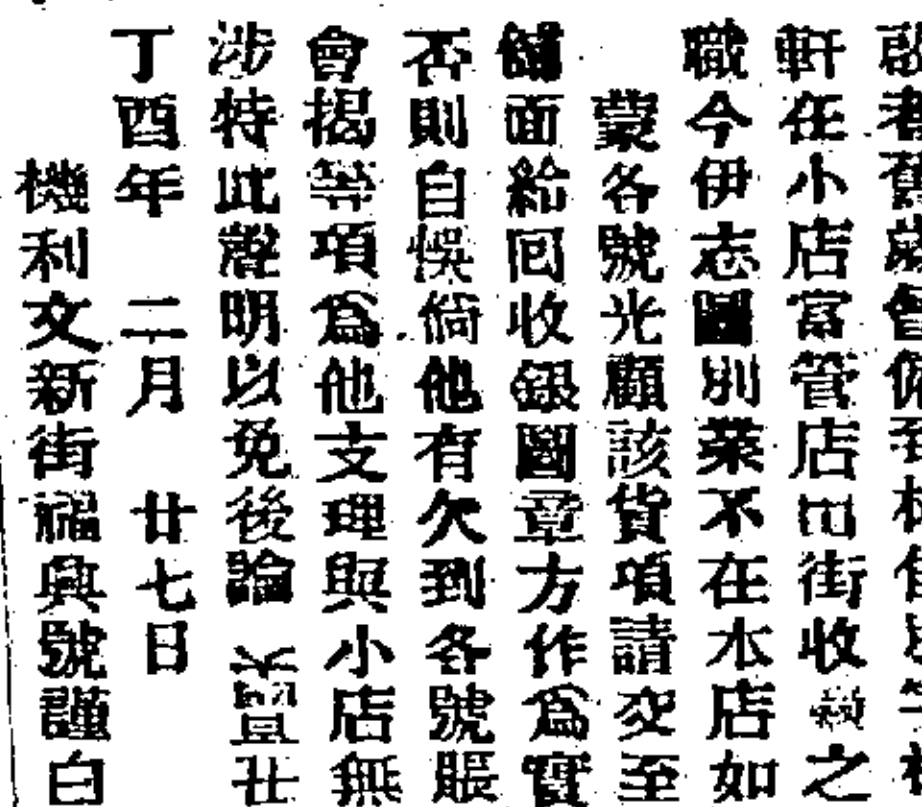 啟者舊歲會
軒在小店富管店口街收之
職今伊志圖別業不在本店如
蒙各號光顧該貨項請交至
舖面給回收銀圖章方作爲實
否則自悞倘他有欠到各號賬
會揭等項爲他支理與小店無
涉特此聲明以免後論
丁酉年 二月 廿七日
機利文新街福興號謹白